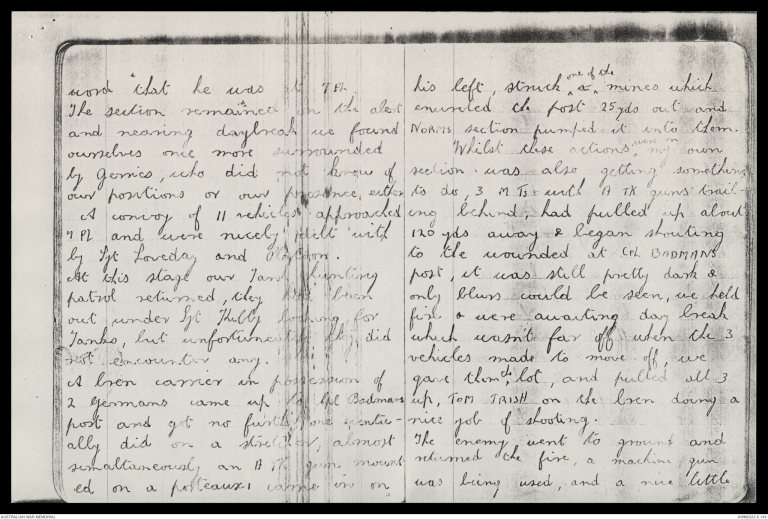 word that he was at 7 Pl.
The section remained on the alert
and nearing daybreak we found
ourselves once more surrounded
by Gerries, who did not know of
our positions or our presence, either
A convoy of 11 vehicles approached
7 Pl and were nicely delt with
by Sgt Loveday and Platoon.
At this stage our Tank hunting
patrol returned, they had been
out under Sgt Kibby looking for
Tanks, but unfortunately they did
not encounter any.
A bren carrier in possession of
2 Germans came up to Cpl Badmans
post and got no further, one eventu-
ally did on a stretcher, almost
simaltaneously an A TK gun mount
ed on a porteaux, came in on
his left, struck one of the mines which
encircled the post 25 yds out and
NORMS section pumped it into them.
Whilst these actions were on my own
section was also getting something
to do, 3 M Ts with A TK guns trail-
ing behind, had pulled up about
120 yds away & began shouting
to the wounded at CPL BADMANS
post, it was still pretty dark &
only blurs could be seen, we held
fire & were awaiting day break
which wasn't far off when the 3
vehicles made to move off, we
gave them the lot, and pulled all 3
up, TOM TRISH on the bren doing a
nice job of shooting.
The enemy went to ground and
returned the fire, a machine gun
was being used, and a nice little
AUSTRALIAN WAR MEMORIAL